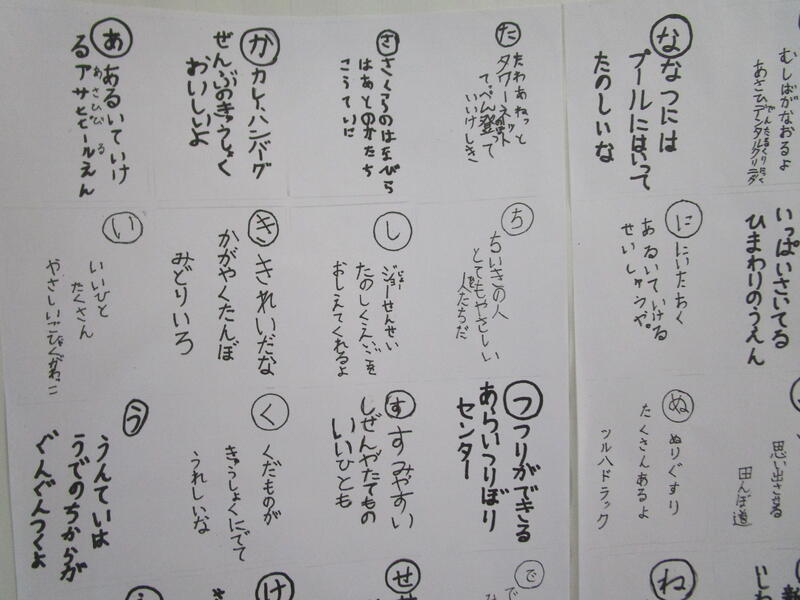 あ
あるいていけ
るアサヒビールえん
あさひびる
か
カレー、ハンバーグ
ぜんぶのきゅうしょく
おいしいよ
さ
さくらのはなびら
はあとのかたち
こうていに
た
たわあねっと
タワーネット
てっぺん登って
いいけしき
な
なつには
プールにはいって
たのしいな
むしばがなおるよ
あさひデンタルクリニック
い
いいひと
たくさん
き
きれいだな
かがやくたんぼ
みどりいろ
し
ジョーせんせい
じょー
たのしくえいごを
おしえてくれるよ
ち
ちいきの人
とてもやさしい
人たちだ
に
にいたおく
あるいていける
せいしゅうや。
いっぱいさいてる
ひまわりのうえん
う
うんていは
うでのちからが
ぐんぐんつくよ
く
くだものが
きゅうしょくにでて
うれしいな
す
すみやすい
しぜんやたてもの
いいひとも
つ
つりができる
あらいつりぼり
センター
ぬ
ぬりぐすり
たくさんあるよ
ツルハドラック
思い出させる
田んぼ道
え
け
せ
で
ね